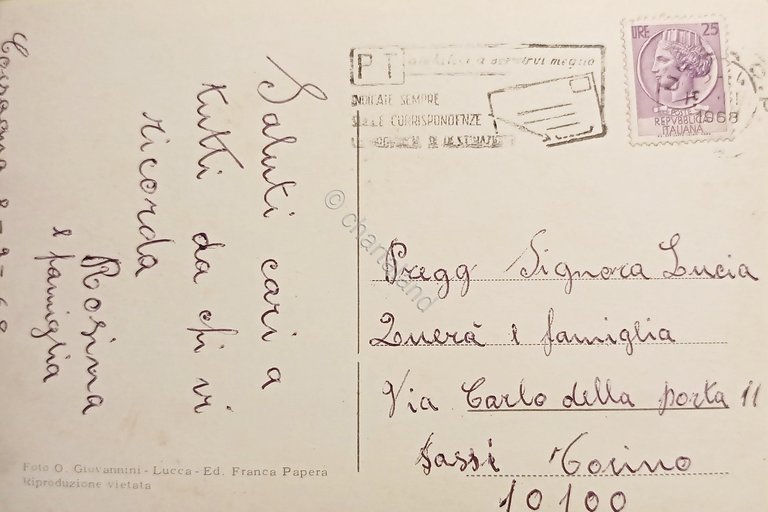 Saluti cari a
tutti da chi vi
ricorda
Rosina
e famiglia
8-9-68
Foto O. Giovannini - Lucca - Ed. Franca Papera
Riproduzione vietata
PT
a servirvi meglio
INDICATE SEMPRE
SULLE CORRISPONDENZE
DI DESTINAZIONE
LIRE 25
POSTE
REPVBBLICA
ITALIANA
1968
Pregg Signora Lucia
Querà e famiglia
Via Carlo della porta 11
Sassi Torino
10100
© chartaland